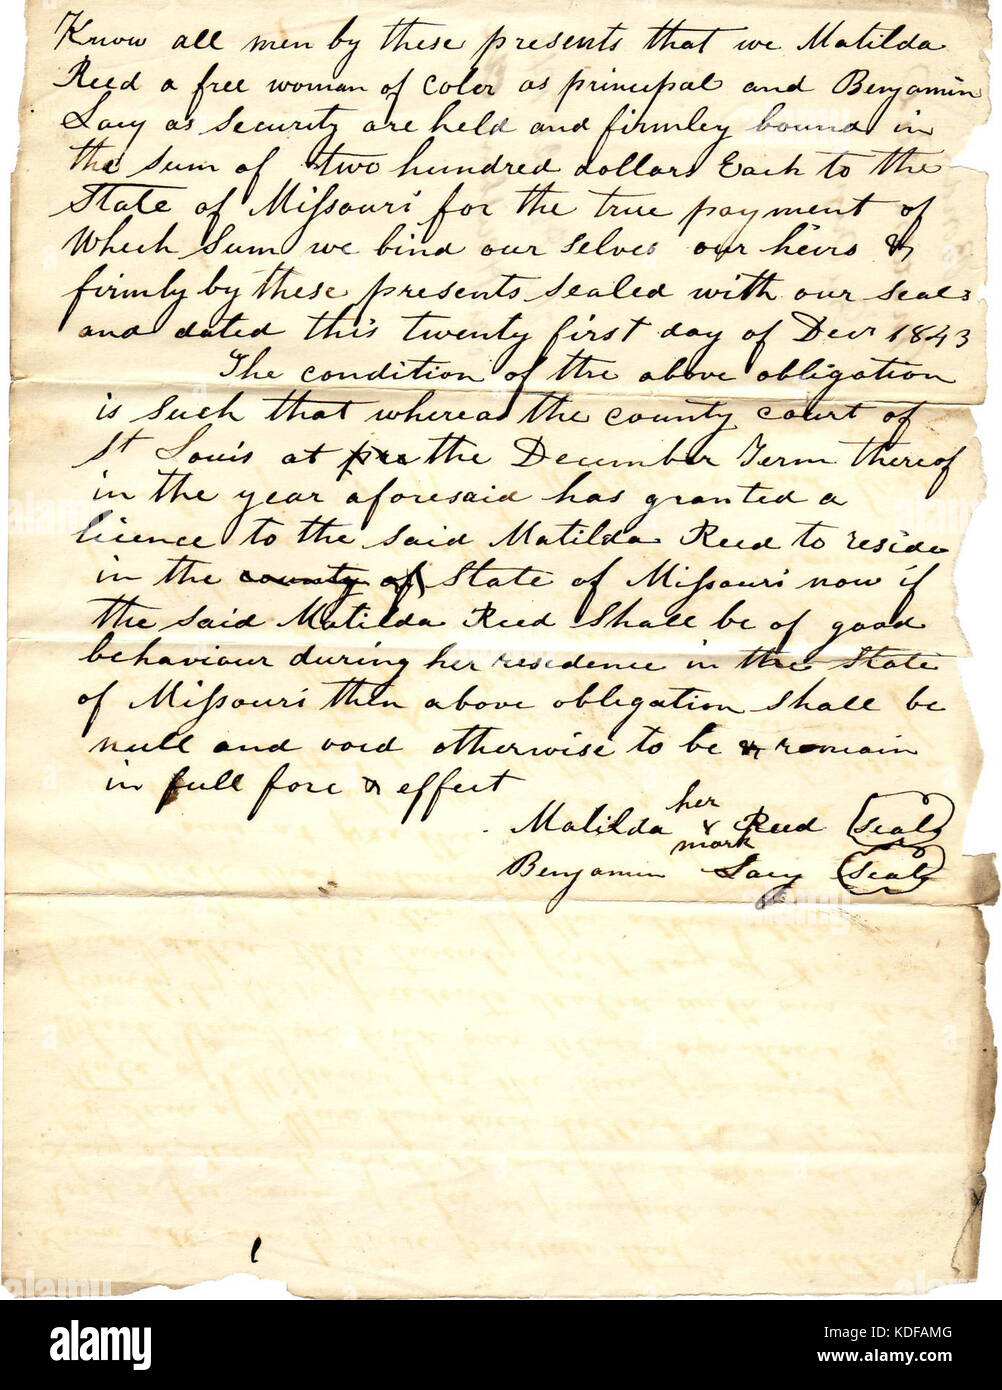 Know all men by these presents that we Matilda
Reed a free woman of Coler as principal and Benjamin
Lacy as Security are held and firmley bound in
the sum of two hundred dollars Each to the
State of Missouri for the true payment of
Which Sum we bind our selves our heirs &
firmly by these presents sealed with our seals
and dated this twenty first day of Decr 1843
The condition of the above obligation
is such that whereas the county court of
St Louis at pre the December Term thereof
in the year aforesaid has granted a
licence to the said Matilda Reed to reside
in the county of State of Missouri now if
the said Matilda Reed Shall be of good
behaviour during her residence in the State
of Missouri then above obligation shall be
null and void otherwise to be & remain
in full force & effect
her
Matilda x Reed seal
mark
Benjamin Lacy Seal
alamy
Image ID: KDFAMG
www.alamy.com